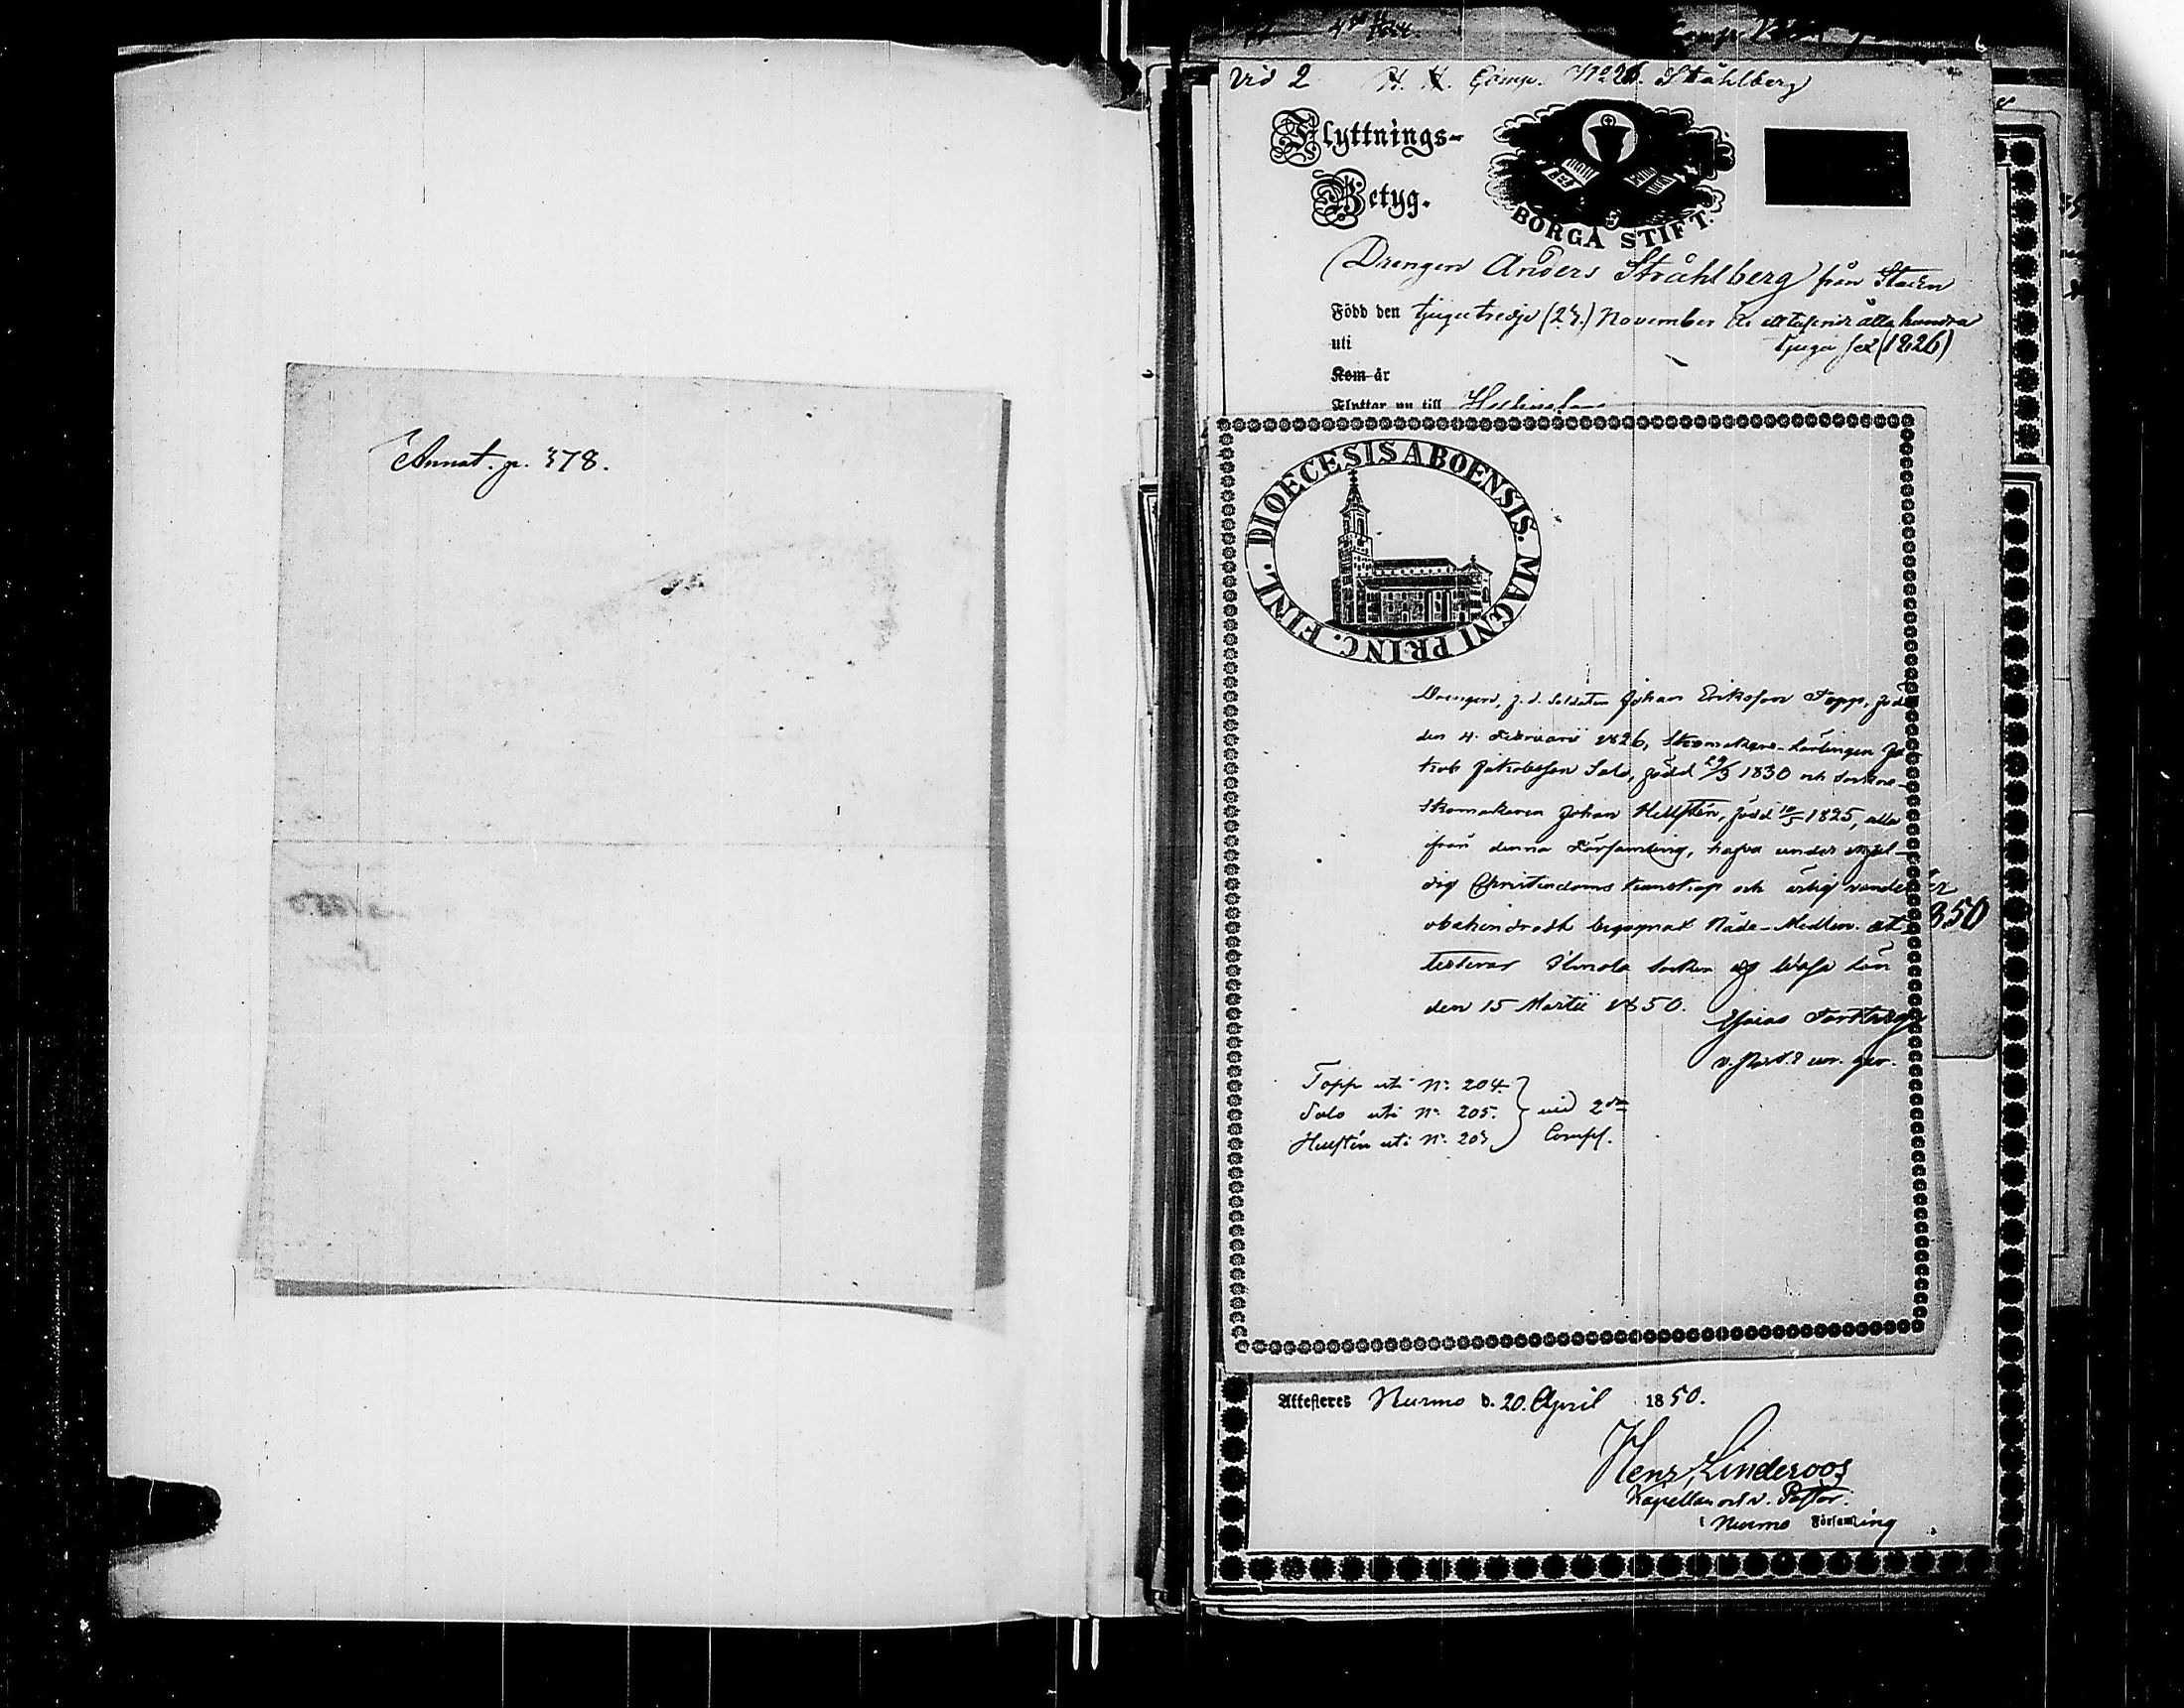 Annat. p. 378.
Vid 2 Comp. Ståhlberg
Flyttnings-
Betyg.
BORGÅ STIFT.
Drengen Anders Stråhlberg från
Född den tjugutredje (23.) November år ett tusende åtta hundra
uti tjugu sex (1826)
Kom år
Flyttar nu till
DIOECESIS ABOENSIS. MAGNI PRINC. FINL.
Drengen, f. d. Soldaten Johan Eriksson Topp, född
den 4. Februarii 1826, Skomakare-Lärlingen Ja-
kob Jakobsson Salo, född 29/3 1830 och Sockne-
Skomakaren Johan Hellstén, född 10/5 1825, alla
från denna Församling, hafva under
dig Christendoms kunskap och ärlig vandel
obehindradt begagnat Nåde-Medlen. At-
testerar Ilmola Socken och Wasa Län
den 15 Martii 1850.
850
v. Past.
Topp uti N:o 204.
Salo uti N:o 205. vid 2dra
Hellstén uti N:o 203 Comp.
Attesteres Nurmo d. 20. April 1850.
Henr. Linderoos
Kapellan och v. Pastor.
i Nurmo Församling